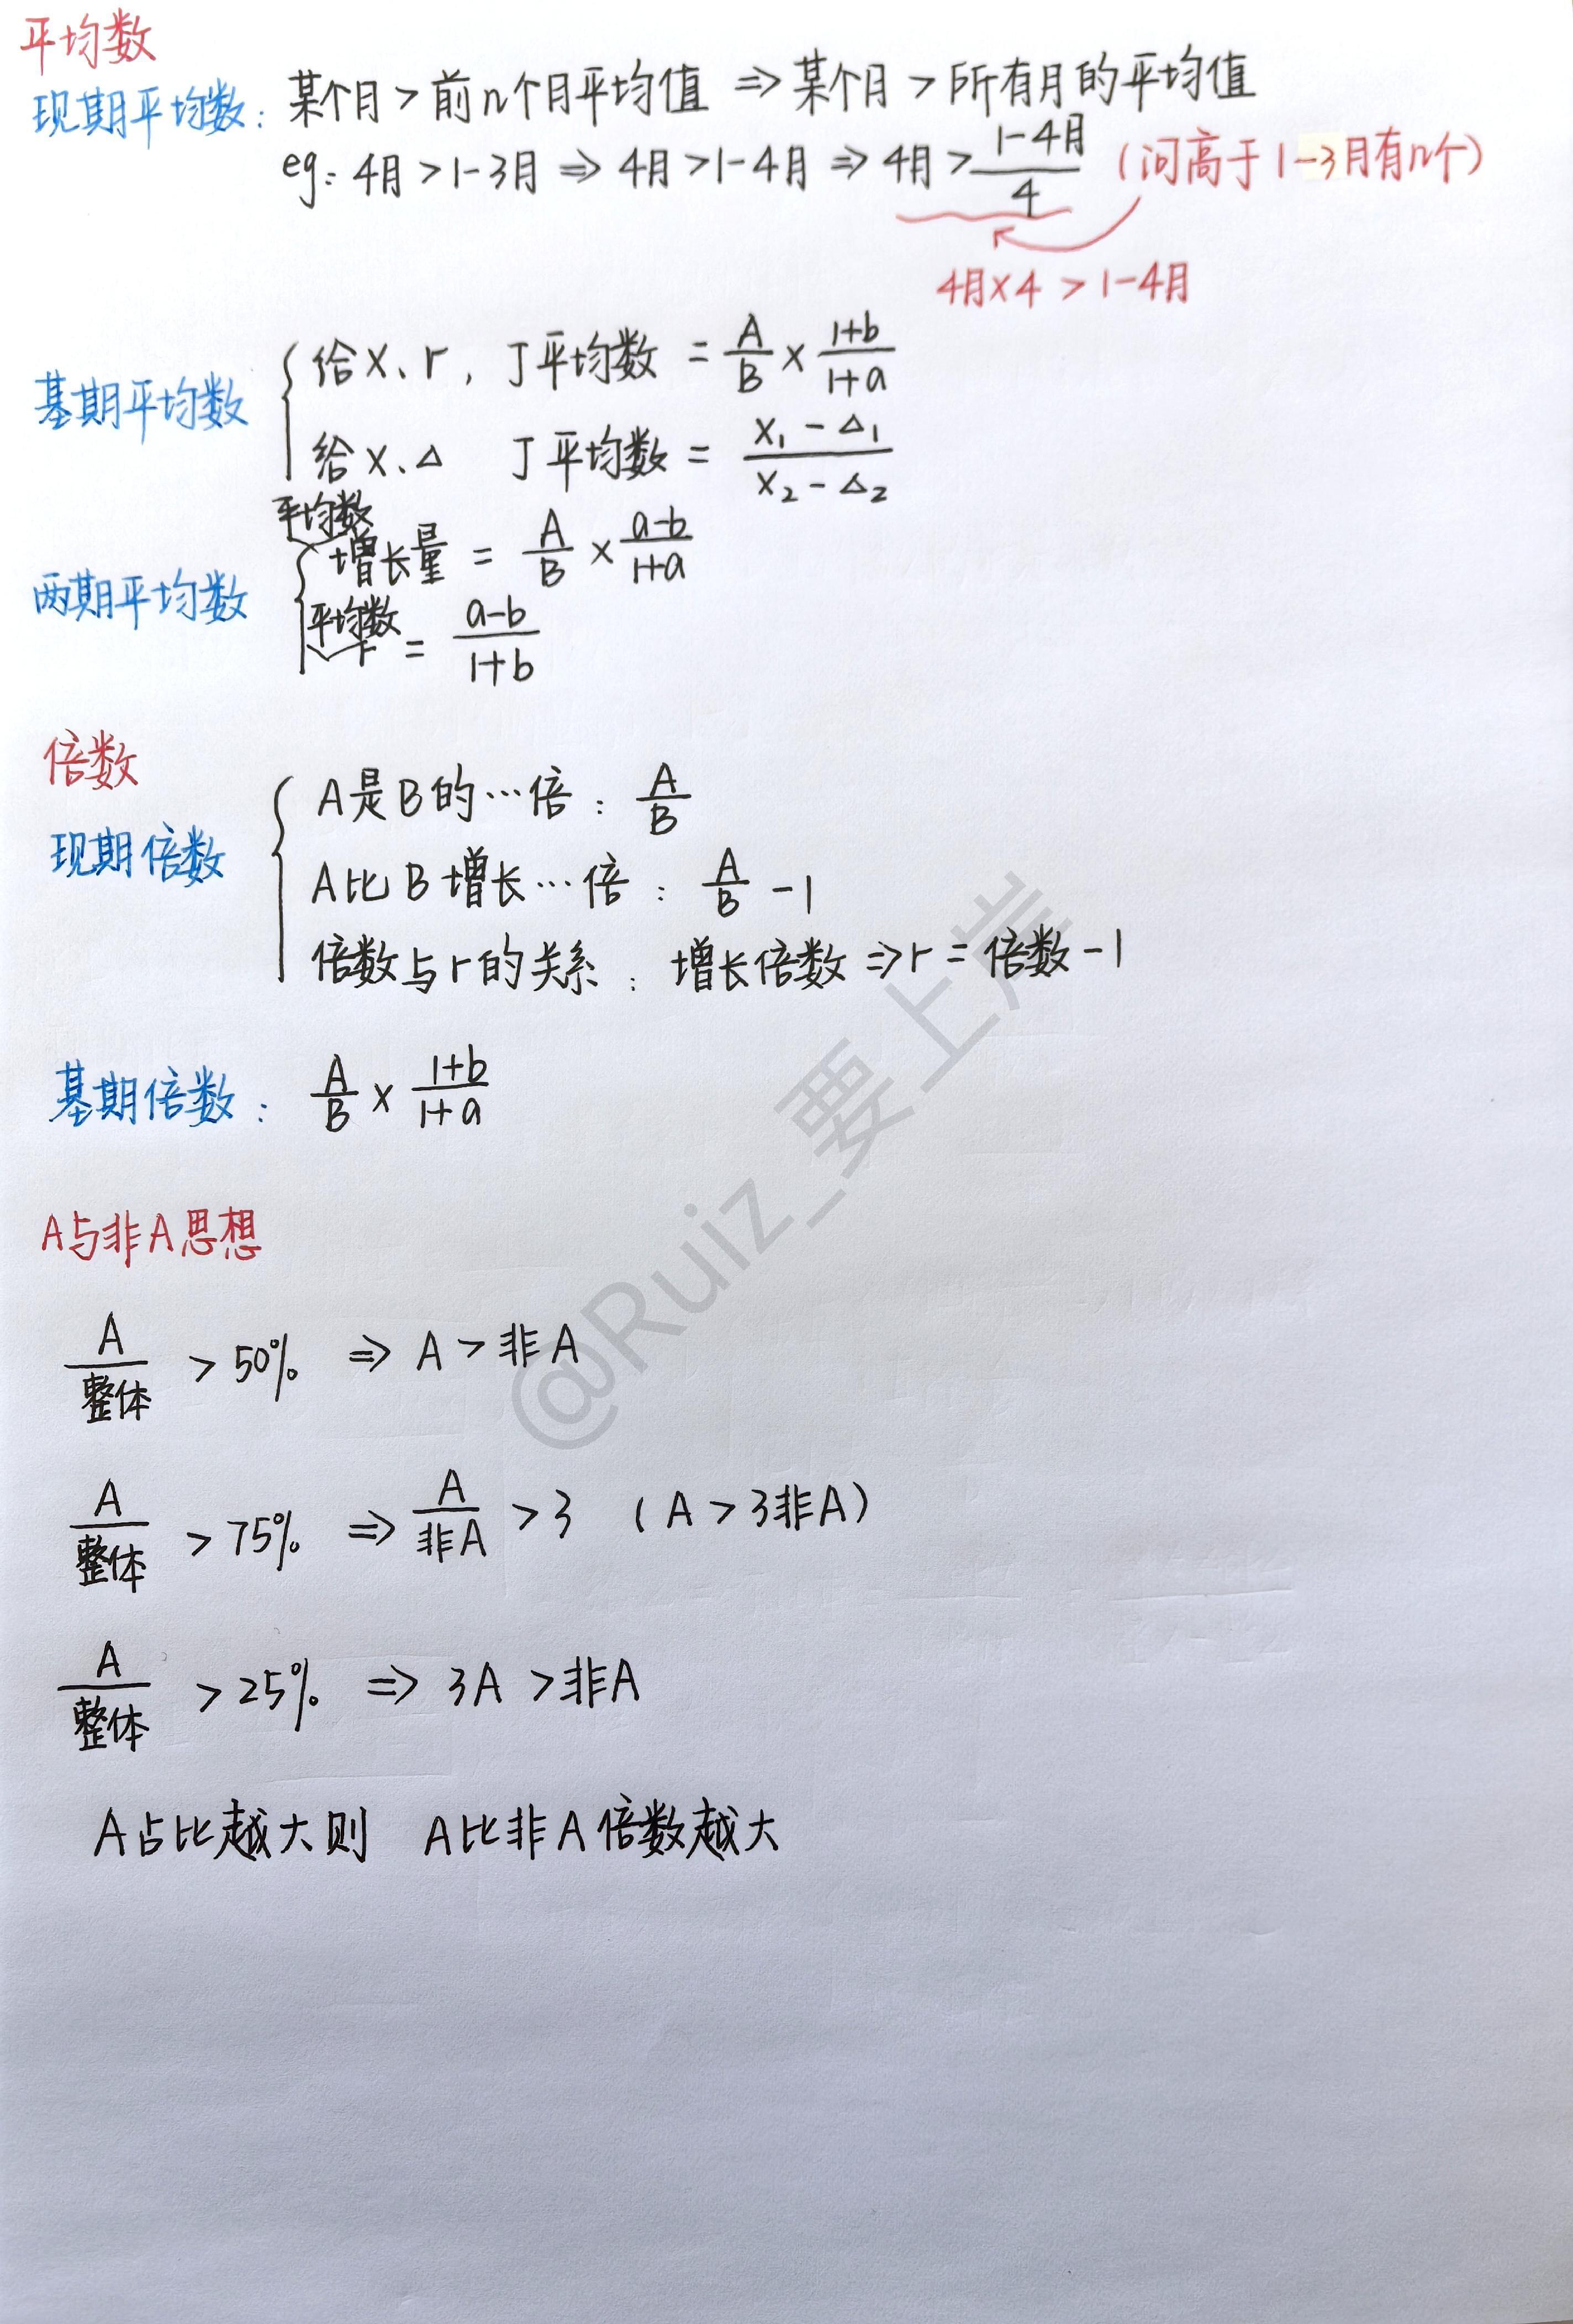 平均数
现期平均数: 某个月 > 前n个月平均值 ⇒ 某个月 > 所有月的平均值
eg: 4月 > 1-3月 ⇒ 4月 > 1-4月 ⇒ 4月 > 1-4月/4 (问高于1-3月有n个)
4月×4 > 1-4月
基期平均数
给X、r, 丁平均数 = A/B × 1+b/1+a
给X、△ 丁平均数 = X₁-△₁/X₂-△₂
两期平均数
平均数增长量 = A/B × a-b/1+a
平均数r = a-b/1+b
倍数
现期倍数
A是B的…倍: A/B
A比B增长…倍: A/B -1
倍数与r的关系: 增长倍数 ⇒ r = 倍数-1
基期倍数: A/B × 1+b/1+a
A与非A思想
A/整体 > 50% ⇒ A > 非A
A/整体 > 75% ⇒ A/非A > 3 (A > 3非A)
A/整体 > 25% ⇒ 3A > 非A
A占比越大则 A比非A倍数越大
@Ruiz_要上岸